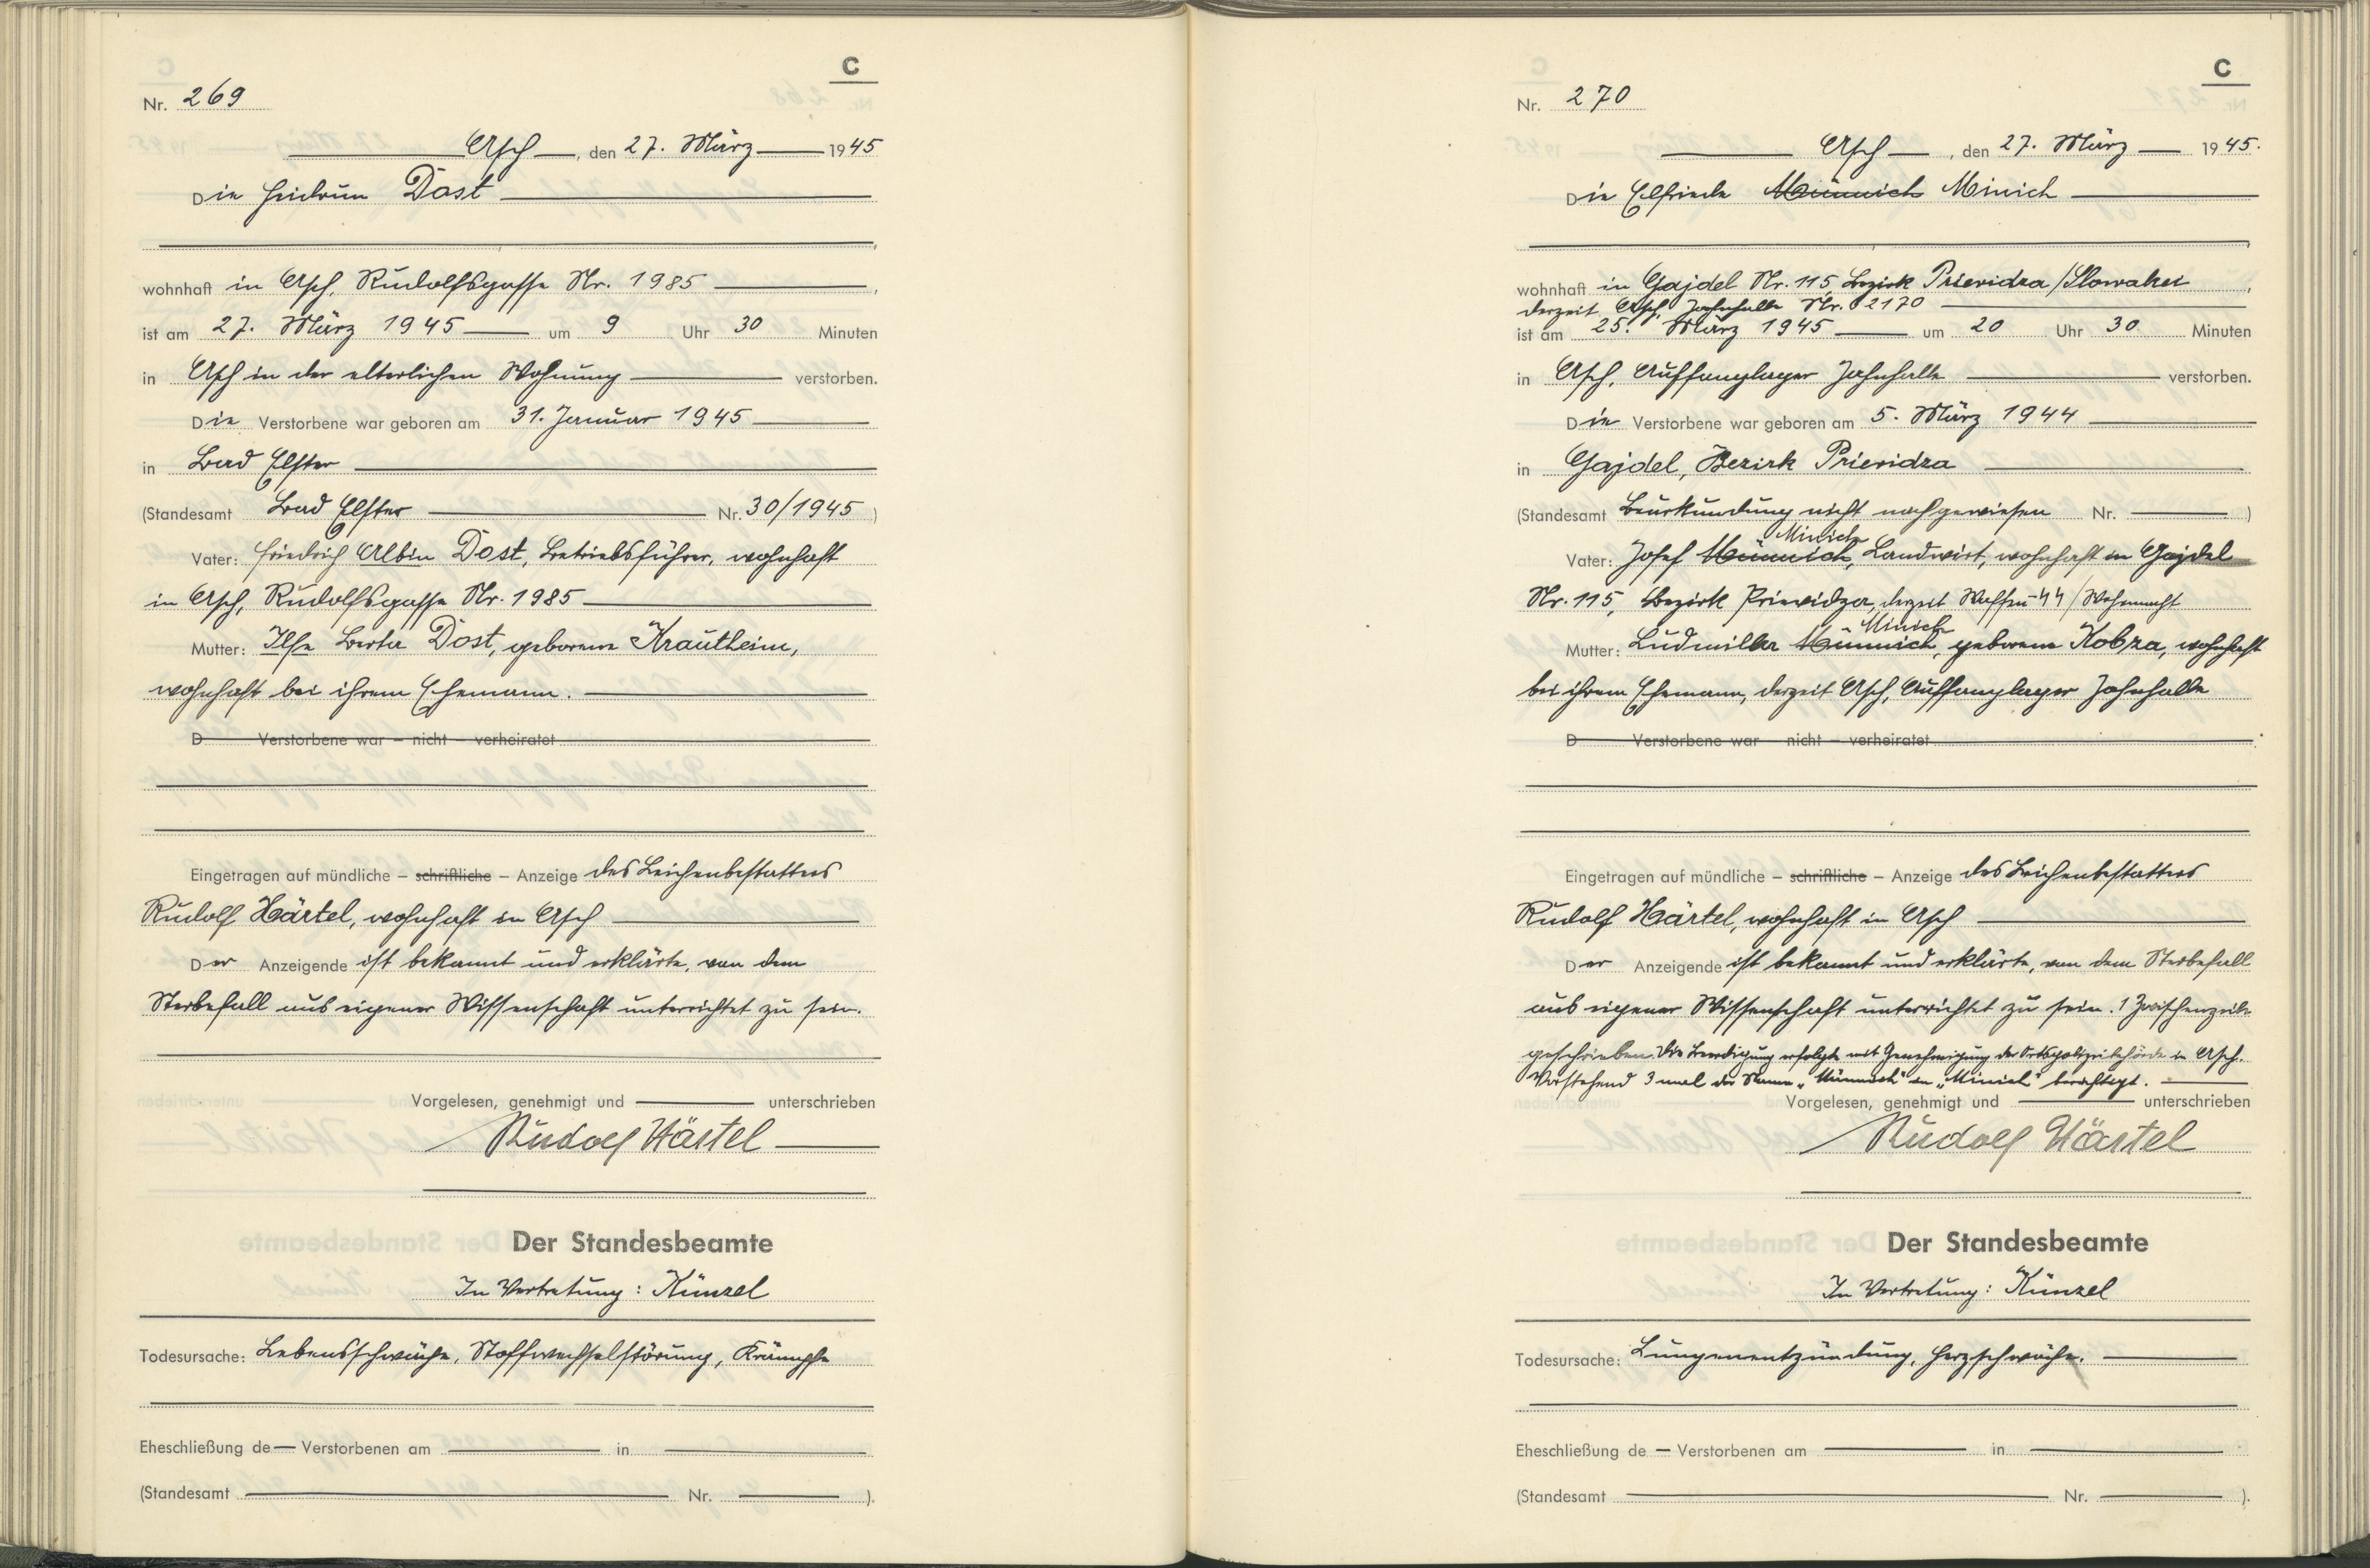 C
Nr. 269
Asch, den 27. März 1945
Die Heidrun Dost
wohnhaft in Asch, Rudolfsgasse Nr. 1985,
ist am 27. März 1945 um 9 Uhr 30 Minuten
in Asch in der elterlichen Wohnung verstorben.
Die Verstorbene war geboren am 31. Januar 1945
in Bad Elster
(Standesamt Bad Elster Nr. 30/1945)
Vater: Friedrich Albin Dost, Betriebsführer, wohnhaft
in Asch, Rudolfsgasse Nr. 1985
Mutter: Ilse Berta Dost, geborene Krautheim,
wohnhaft bei ihrem Ehemann.
D Verstorbene war – nicht – verheiratet
Eingetragen auf mündliche – schriftliche – Anzeige des Leichenbestatters
Rudolf Härtel, wohnhaft in Asch
Der Anzeigende ist bekannt und erklärte, von dem
Sterbefall aus eigener Wissenschaft unterrichtet zu sein.
Vorgelesen, genehmigt und unterschrieben
Rudolf Härtel
Der Standesbeamte
In Vertretung: Künzel
Todesursache: Lebensschwäche, Stoffwechselstörung, Krämpfe
Eheschließung de Verstorbenen am in
(Standesamt Nr. ).
C
Nr. 270
Asch, den 27. März 1945.
Die Elfriede Münnich Minich
wohnhaft in Gajdel Nr. 115, Bezirk Prievidza/Slowakei,
derzeit Asch, Jahnhalle Nr. 2170
ist am 25. März 1945 um 20 Uhr 30 Minuten
in Asch, Auffanglager Jahnhalle verstorben.
Die Verstorbene war geboren am 5. März 1944
in Gajdel, Bezirk Prievidza
(Standesamt Beurkundung nicht nachgewiesen Nr. )
Minich
Vater: Josef Münnich, Landwirt, wohnhaft in Gajdel
Nr. 115, Bezirk Prievidza, derzeit Waffen-SS/Wehrmacht
Minich
Mutter: Ludmilla Münnich, geborene Kobza, wohnhaft
bei ihrem Ehemann, derzeit Asch, Auffanglager Jahnhalle
D Verstorbene war nicht – verheiratet
Eingetragen auf mündliche – schriftliche – Anzeige des Leichenbestatters
Rudolf Härtel, wohnhaft in Asch
Der Anzeigende ist bekannt und erklärte, von dem Sterbefall
aus eigener Wissenschaft unterrichtet zu sein. 1 Zwischenzeile
geschrieben. Die Beerdigung erfolgte mit Genehmigung der Ortspolizeibehörde in Asch.
Vorstehend 3 mal der Name „Münnich" in „Minich" berichtigt.
Vorgelesen, genehmigt und unterschrieben
Rudolf Härtel
Der Standesbeamte
In Vertretung: Künzel
Todesursache: Lungenentzündung, Herzschwäche.
Eheschließung de Verstorbenen am in
(Standesamt Nr. ).